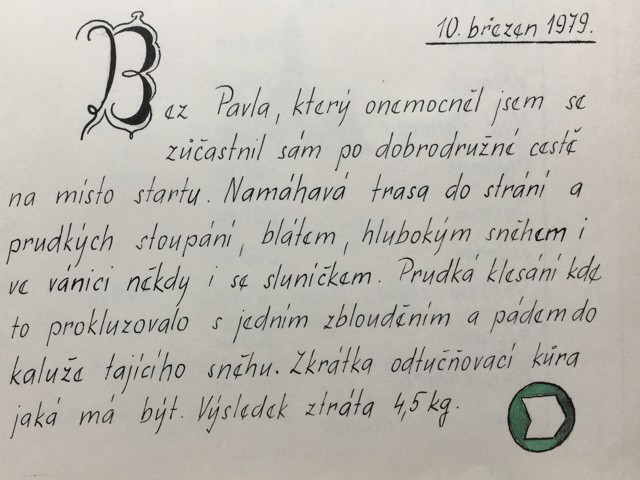 10. březen 1979.
Bez Pavla, který onemocněl jsem se
zůčastnil sám po dobrodružné cestě
na místo startu. Namáhavá trasa do strání a
prudkých stoupání, blátem, hlubokým sněhem i
ve vánici někdy i se sluníčkem. Prudká klesání kde
to prokluzovalo s jedním zblouděním a pádem do
kaluže tajícího sněhu. Zkrátka odtučňovací kůra
jaká má být. Výsledek ztráta 4,5 kg.